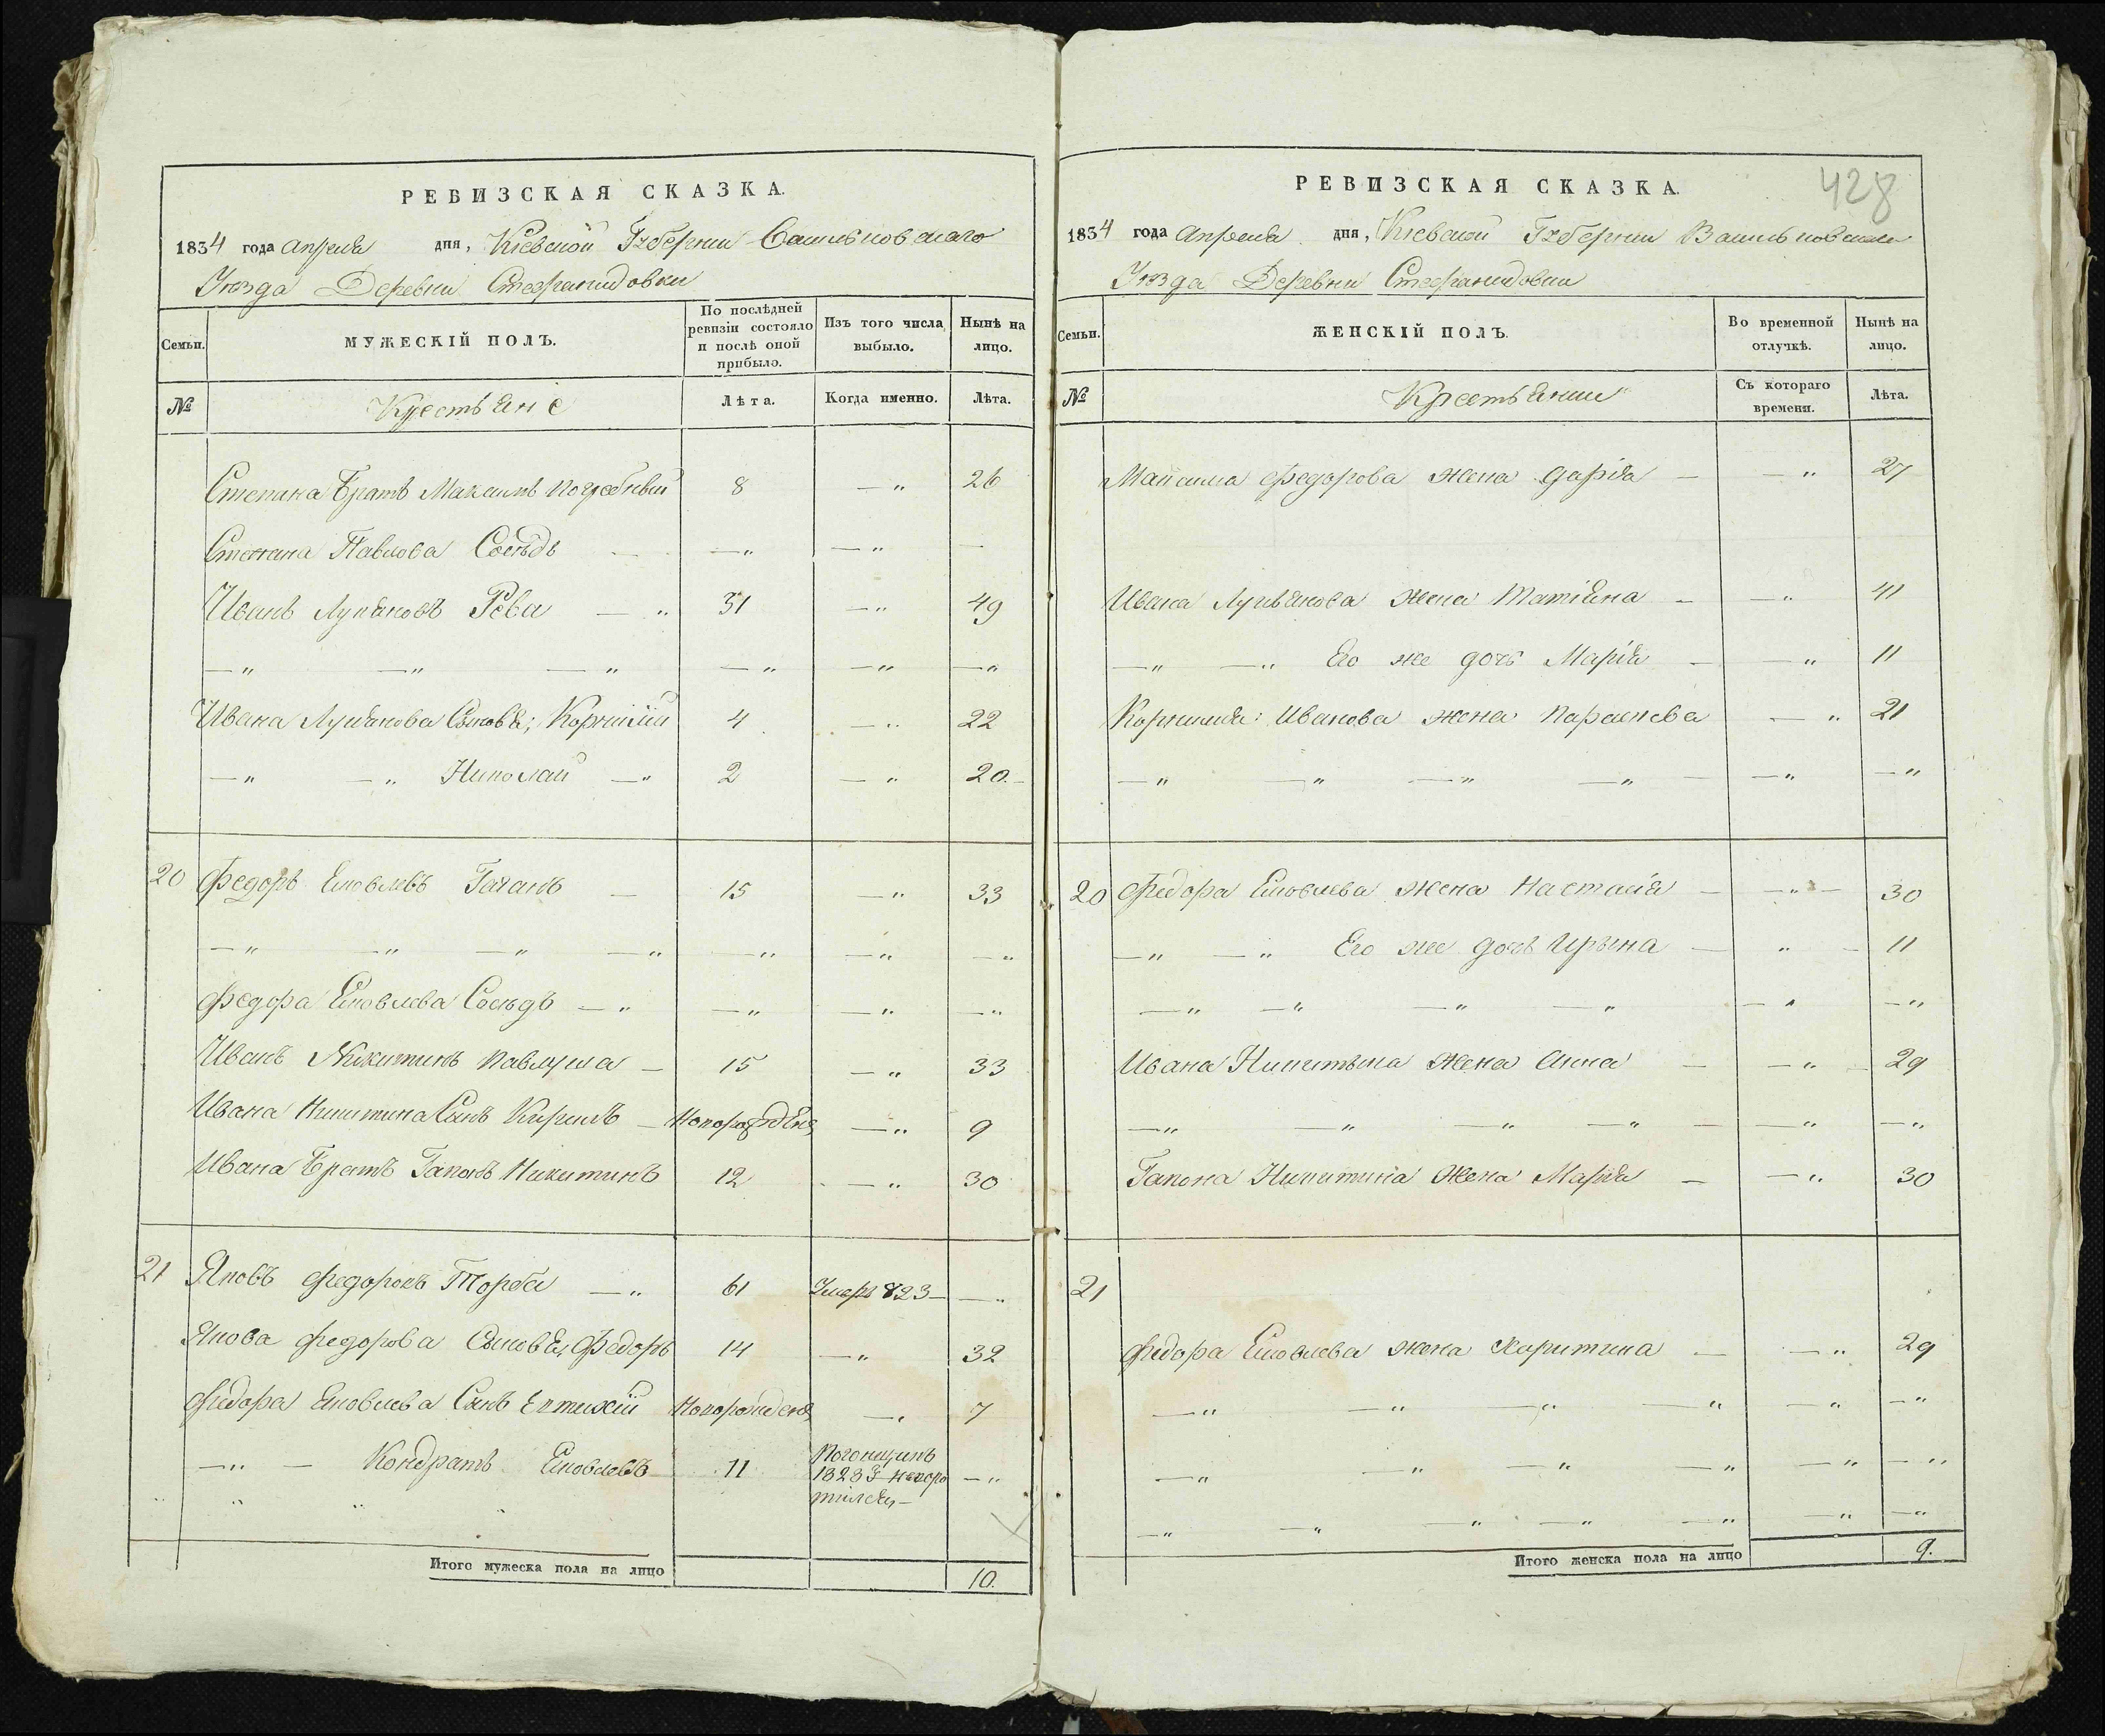 РЕВИЗСКАЯ СКАЗКА.
1834 года Апреля дня, Кіевской Губерніи Васильковскаго
Уезда Деревни Стефанидовки
Семьи. МУЖЕСКІЙ ПОЛЪ. По послѣдней ревизіи состояло и послѣ оной прибыло. Изъ того числа выбыло. Нынѣ на лицо.
№ Крестьяне Лѣта. Когда именно. Лѣта.
Степана Братъ Максимъ Погребный 8 —„ 26
Степана Павлова Соседъ — —„ —„ —
Иванъ Лукяновъ Рева —„ 31 —„ 49
—„ —„ —„ —„ —„ —„
Ивана Лукянова Сыновья; Корнилій 4 —„ 22
—„ —„ Николай —„ 2 —„ 20.
20 Федоръ Яковлевъ — 15 —„ 33
—„ —„ —„ —„ —„ —„ —„
Федора Яковлева Соседъ —„ —„ —„ —„
Иванъ Никитинъ Павлуша — 15 —„ 33
Ивана Никитина Сынъ Кирилъ — Новорожденъ —„ 9
Ивана Братъ Гапонъ Никитинъ 12 —„ 30
21 Яковъ Федоровъ Торба —„ 61 Умеръ 823 — —„
Якова Федорова Сыновья Федоръ 14 —„ 32
Федора Яковлева Сынъ Евтихій Новорожденъ —„ 7
—„ — Кондратъ Яковлевъ 11 1828 —„
Итого мужеска пола на лицо 10.
РЕВИЗСКАЯ СКАЗКА.
428
1834 года Апреля дня, Кіевской Губерніи Васильковскаго
Уезда Деревни Стефанидовки
Семьи. ЖЕНСКІЙ ПОЛЪ. Во временной отлучкѣ. Нынѣ на лицо.
№ Крестьянки Съ котораго времени. Лѣта.
Максима Федорова жена Дарія — —„ 27
Ивана Лукьянова жена Татіяна — —„ 41
—„ —„ Его же дочь Марія — —„ 11
Корнилія Иванова жена Параскева —„ 21
—„ —„ —„ —„ —„ —„
20 Федора Яковлева жена Настасія — —„— 30
—„ —„ Его же дочь Ирына — „ — 11
—„ —„ —„ —„ —„ —„
Ивана Никитына жена Анна — —„ — 29
—„ —„ —„ —„ — —„ —„
Гапона Никитина жена Марія — —„ 30
21
Федора Яковлева жена Харитина — —„ 29
—„ —„ —„ —„ —„ —„
—„ —„ —„ —„ —„ —„
—„ —„ —„ —„ —„ —„ —„
Итого женска пола на лицо 9.